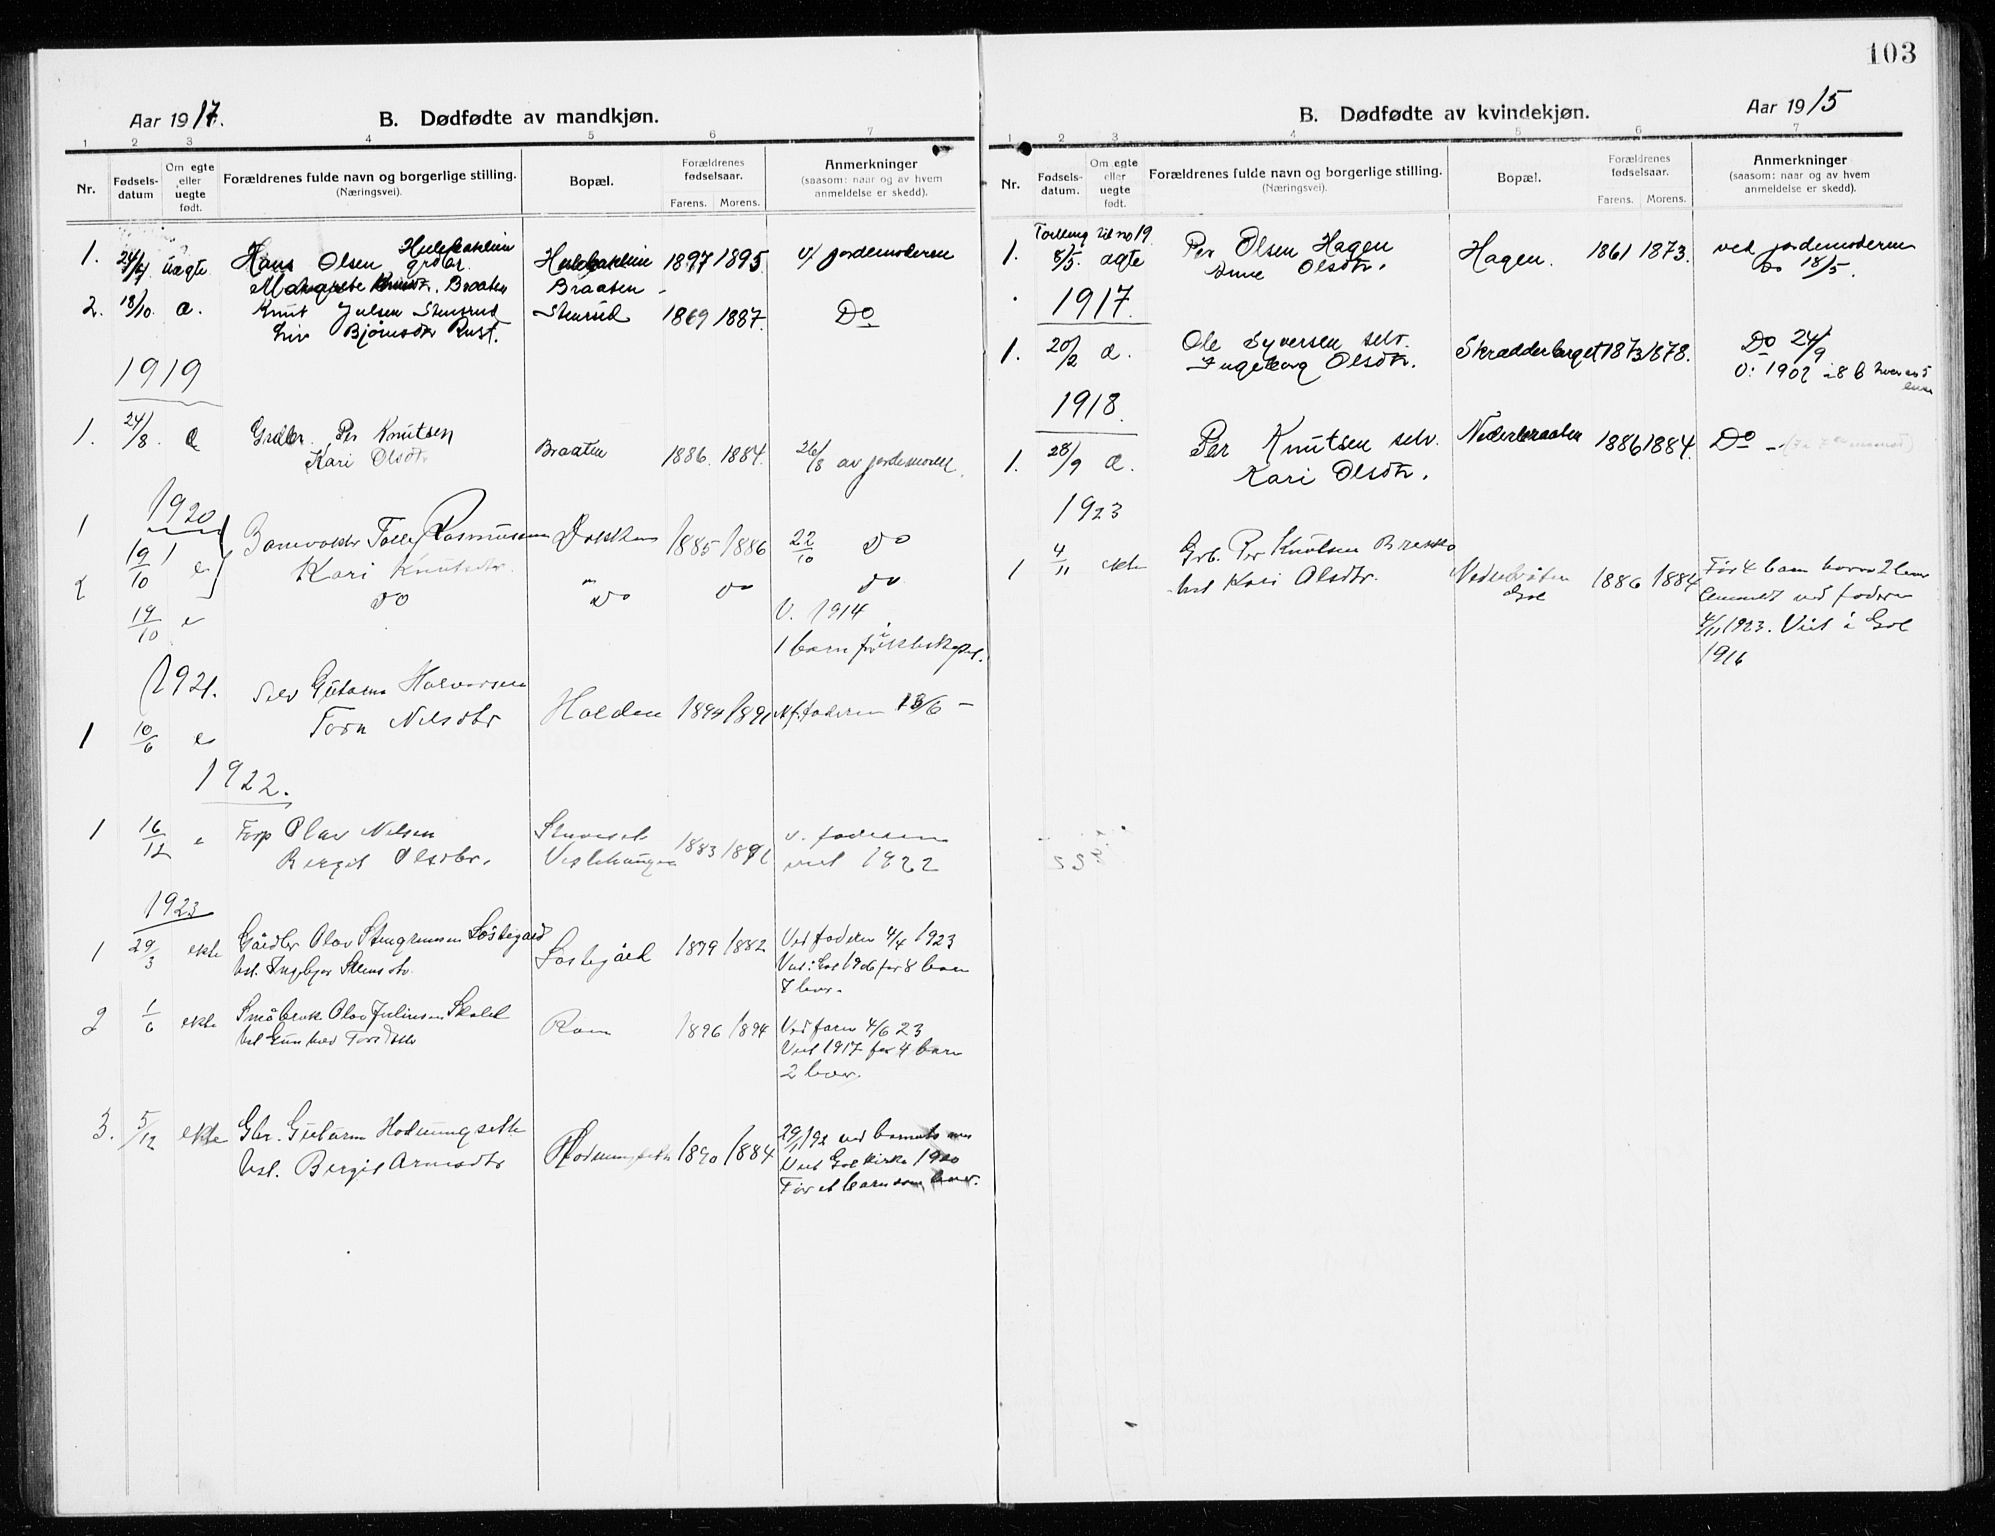 103
Aar 1917.
B. Dødfødte av mandkjøn.
1 2 3 4 5 6 7
Nr.
Fødsels-
datum
Om egte
eller
uegte
født.
Forældrenes fulde navn og borgerlige stilling.
(Næringsvei).
Bopæl.
Forældrenes
fødselsaar.
Farens. Morens.
Anmerkninger
(saasom: naar og av hvem
anmeldelse er skedd).
1. 24/4 uægte Hans Olsen grdbr. 1897 1895. v/ jordemoderen
Braaten Braaten
2. 18/10. æ. Knut Julsen Stensrud Stensrud 1869 1887. Do
Liv Bjørnsdtr Rust.
1919
1. 24/8. æ Grdbr. Per Knutsen Braaten 1886. 1884. 26/8 av jordemoder
Kari Olsdtr
1920
1 19/10 e Rasmussen 1885 1886 22/10 Do
Kari Knutsdtr.
2 19/10 e Do Do Do Do
V. 1914
1 barn før i
1921.
1 10/6 e Selv Halvorsen Holden 1894 1891 Af faderen 13/6 –
Nilsdtr
1922.
1 16/12 e Olav Nilsen 1883 v. faderen
Bergit Olsdtr. viet 1922
1923
1 29/3 ekte Gårdbr Olav 1879 1882 Ved faderen 4/4 1923
Hst. Ingbjør Viet i Gol 1906 før 8 barn
7 lever.
2 1/6 ekte Småbruk. Olav Juliussen 1896 1894 Ved faren 4/6 23
Viet 1917 før 4 barn
2 lever.
3. 5/12 ekte Gbr. Guttorm 1890 1884
Hst. Bergit Viet Gol kirke 1920
Før et barn som lever.
Aar 1915
B. Dødfødte av kvindekjøn.
1 2 3 4 5 6 7
Nr.
Fødsels-
datum.
Om egte
eller
uegte
født.
Forældrenes fulde navn og borgerlige stilling.
(Næringsvei).
Bopæl.
Forældrenes
fødselsaar.
Farens. Morens.
Anmerkninger
(saasom: naar og av hvem
anmeldelse er skedd).
Tvilling til no 19.
1. 8/5. ægte Per Olsen Hagen Hagen. 1861 1873. ved jordemoderen
Anne Olsdtr. Do 18/5.
1917.
1. 20/2 æ. Ole Syversen selv. Skrædderberget 1873 1878. Do 24/9
Ingeborg Olsdtr. V: 1902
1918.
1. 28/9 æ. Per Knutsen selv. Nederbraaten 1886 1884. Do –
Kari Olsdtr.
1923
1 4/11 ekte Grb. Per Knutsen
Hst Kari Olsdtr. Nedrebråten 1886 1884 Før 4 barn hvorav 2 lever
Gol anmeldt ved faderen
4/11 1923. Viet i Gol
1916